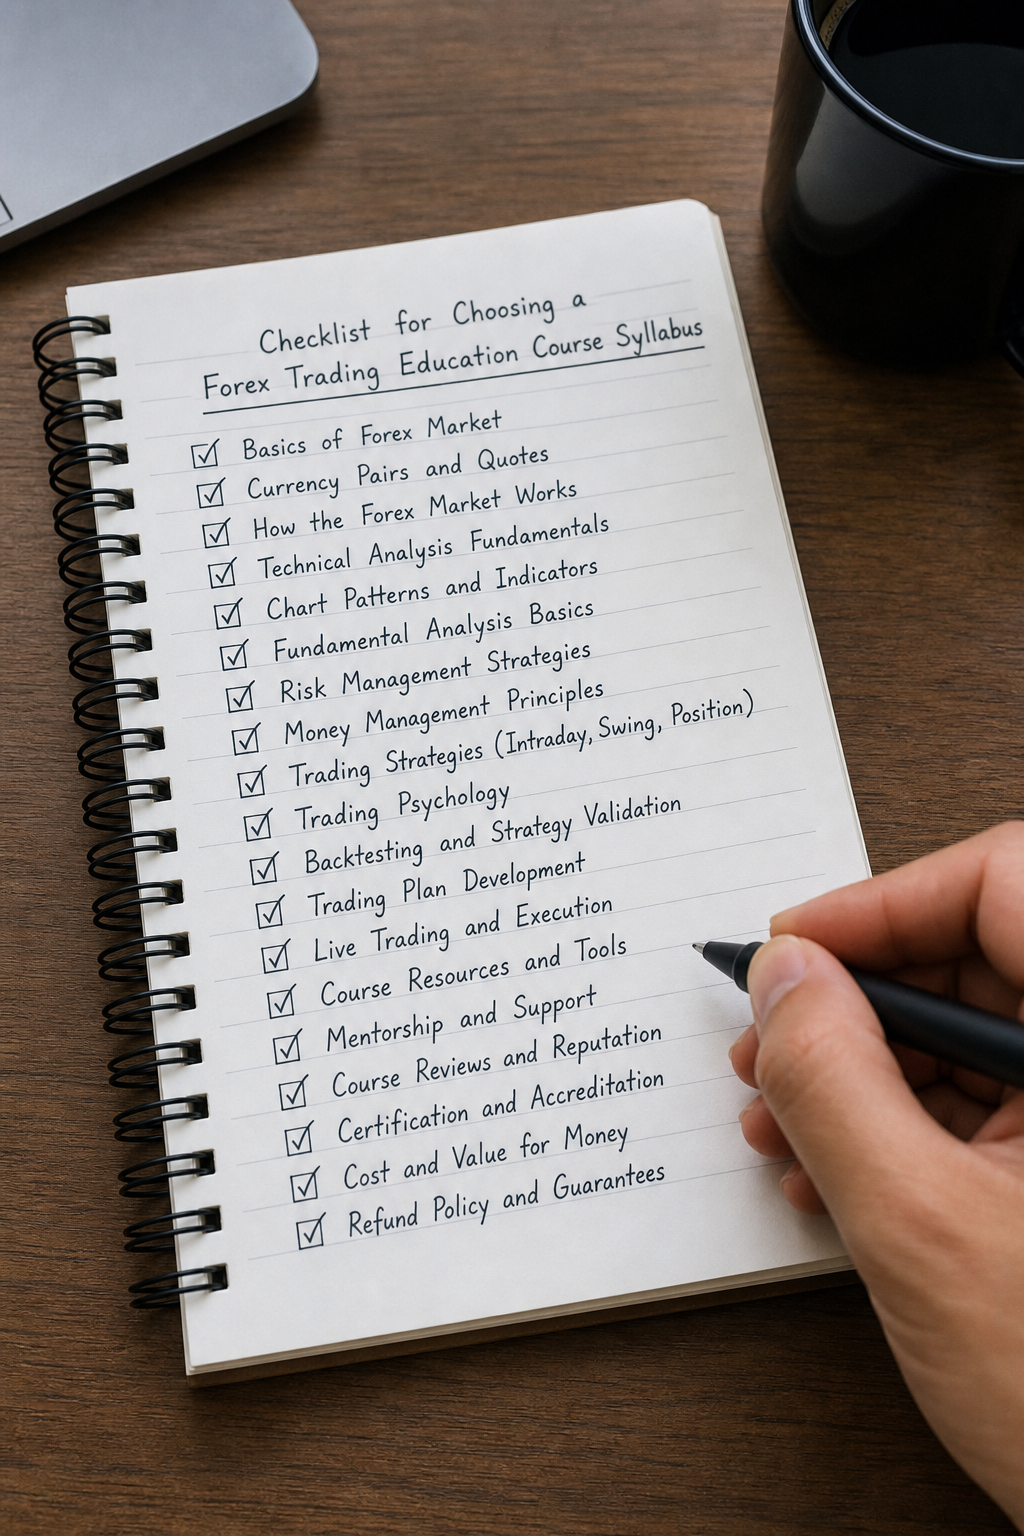 Checklist for Choosing a
Forex Trading Education Course Syllabus
Basics of Forex Market
Currency Pairs and Quotes
How the Forex Market Works
Technical Analysis Fundamentals
Chart Patterns and Indicators
Fundamental Analysis Basics
Risk Management Strategies
Money Management Principles
Trading Strategies (Intraday, Swing, Position)
Trading Psychology
Backtesting and Strategy Validation
Trading Plan Development
Live Trading and Execution
Course Resources and Tools
Mentorship and Support
Course Reviews and Reputation
Certification and Accreditation
Cost and Value for Money
Refund Policy and Guarantees